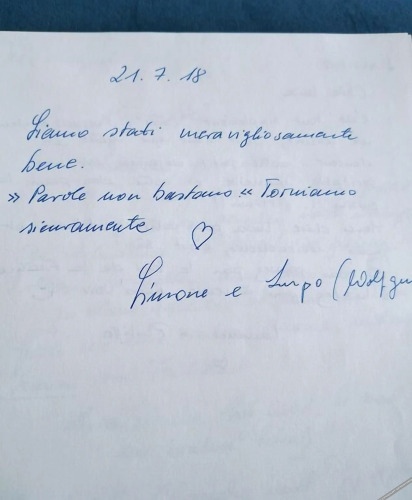 21. 7. 18
Siamo stati meravigliosamente
bene.
» Parole non bastano « Torniamo
sicuramente ♡
Simone e Lupo (Wolfgu